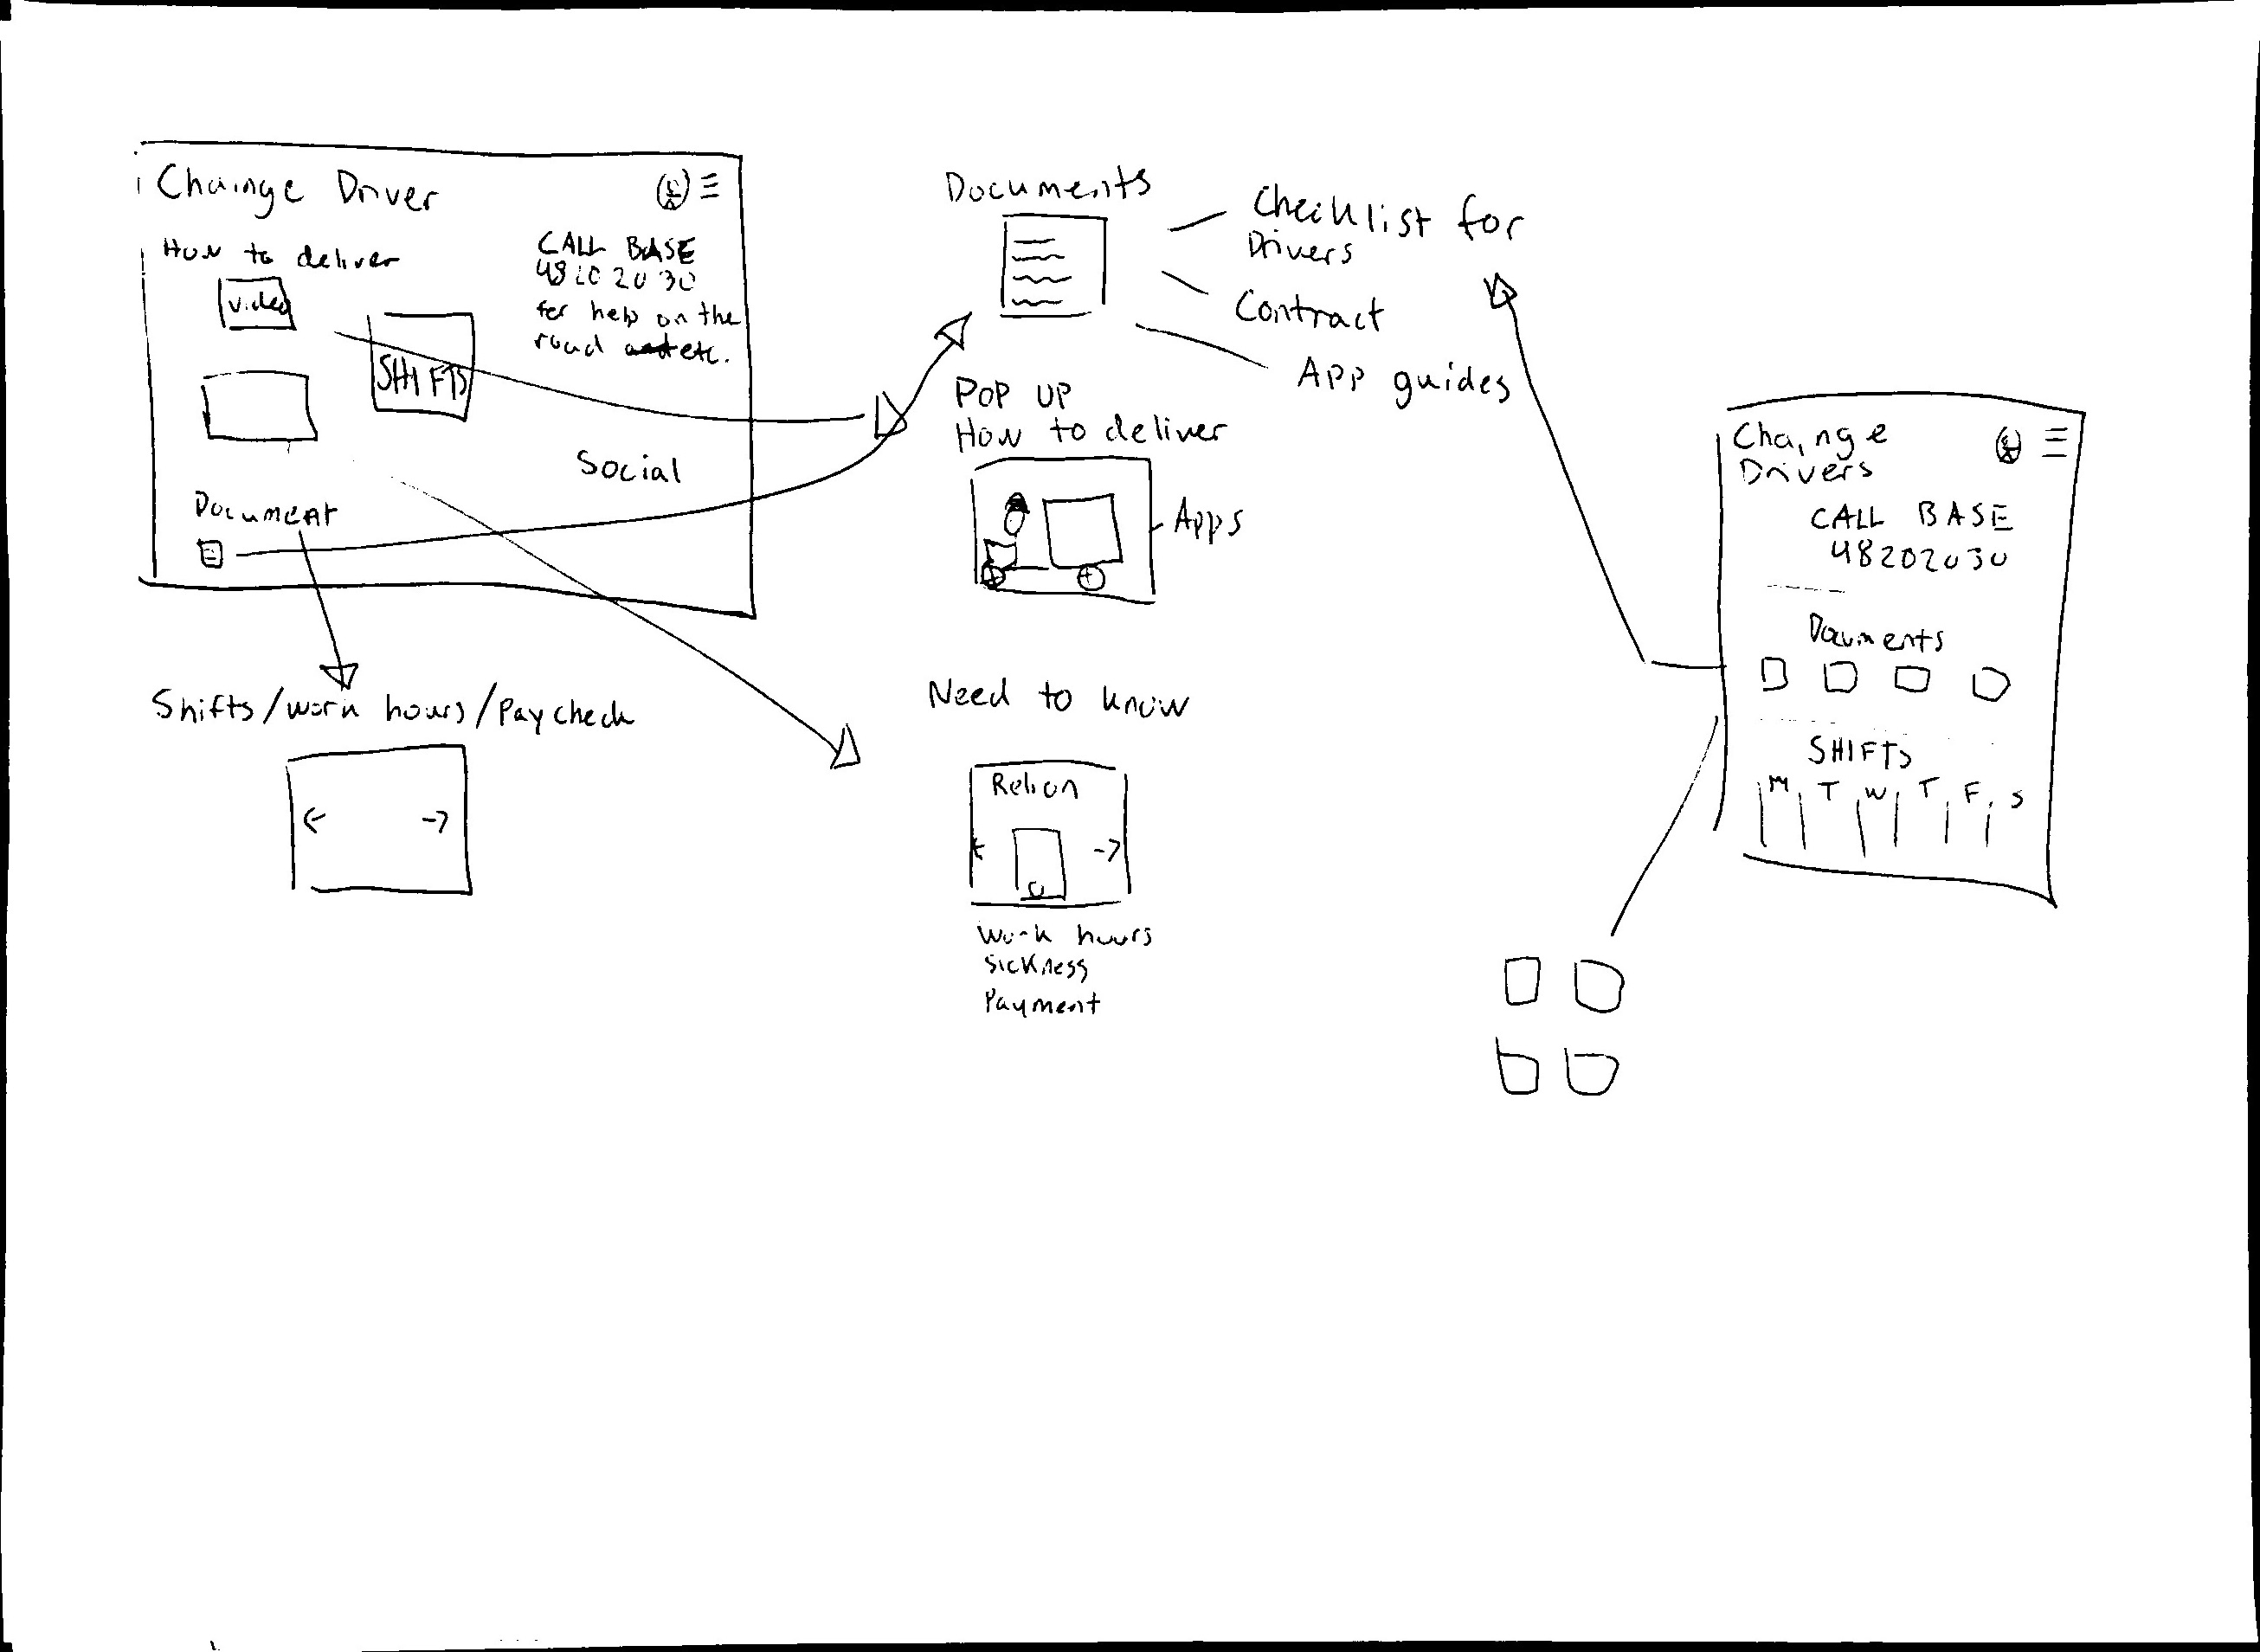 Chainge Driver
How to deliver
video
SHIFTS
CALL BASE
48202030
for help on the
road etc.
Social
Document
Shifts/work hours/Paycheck
Documents
Checklist for
Drivers
Contract
App guides
POP UP
How to deliver
Apps
Need to know
Relion
Work hours
Sickness
Payment
Chainge
Drivers
CALL BASE
48202030
Documents
SHIFTS
M T W T F S